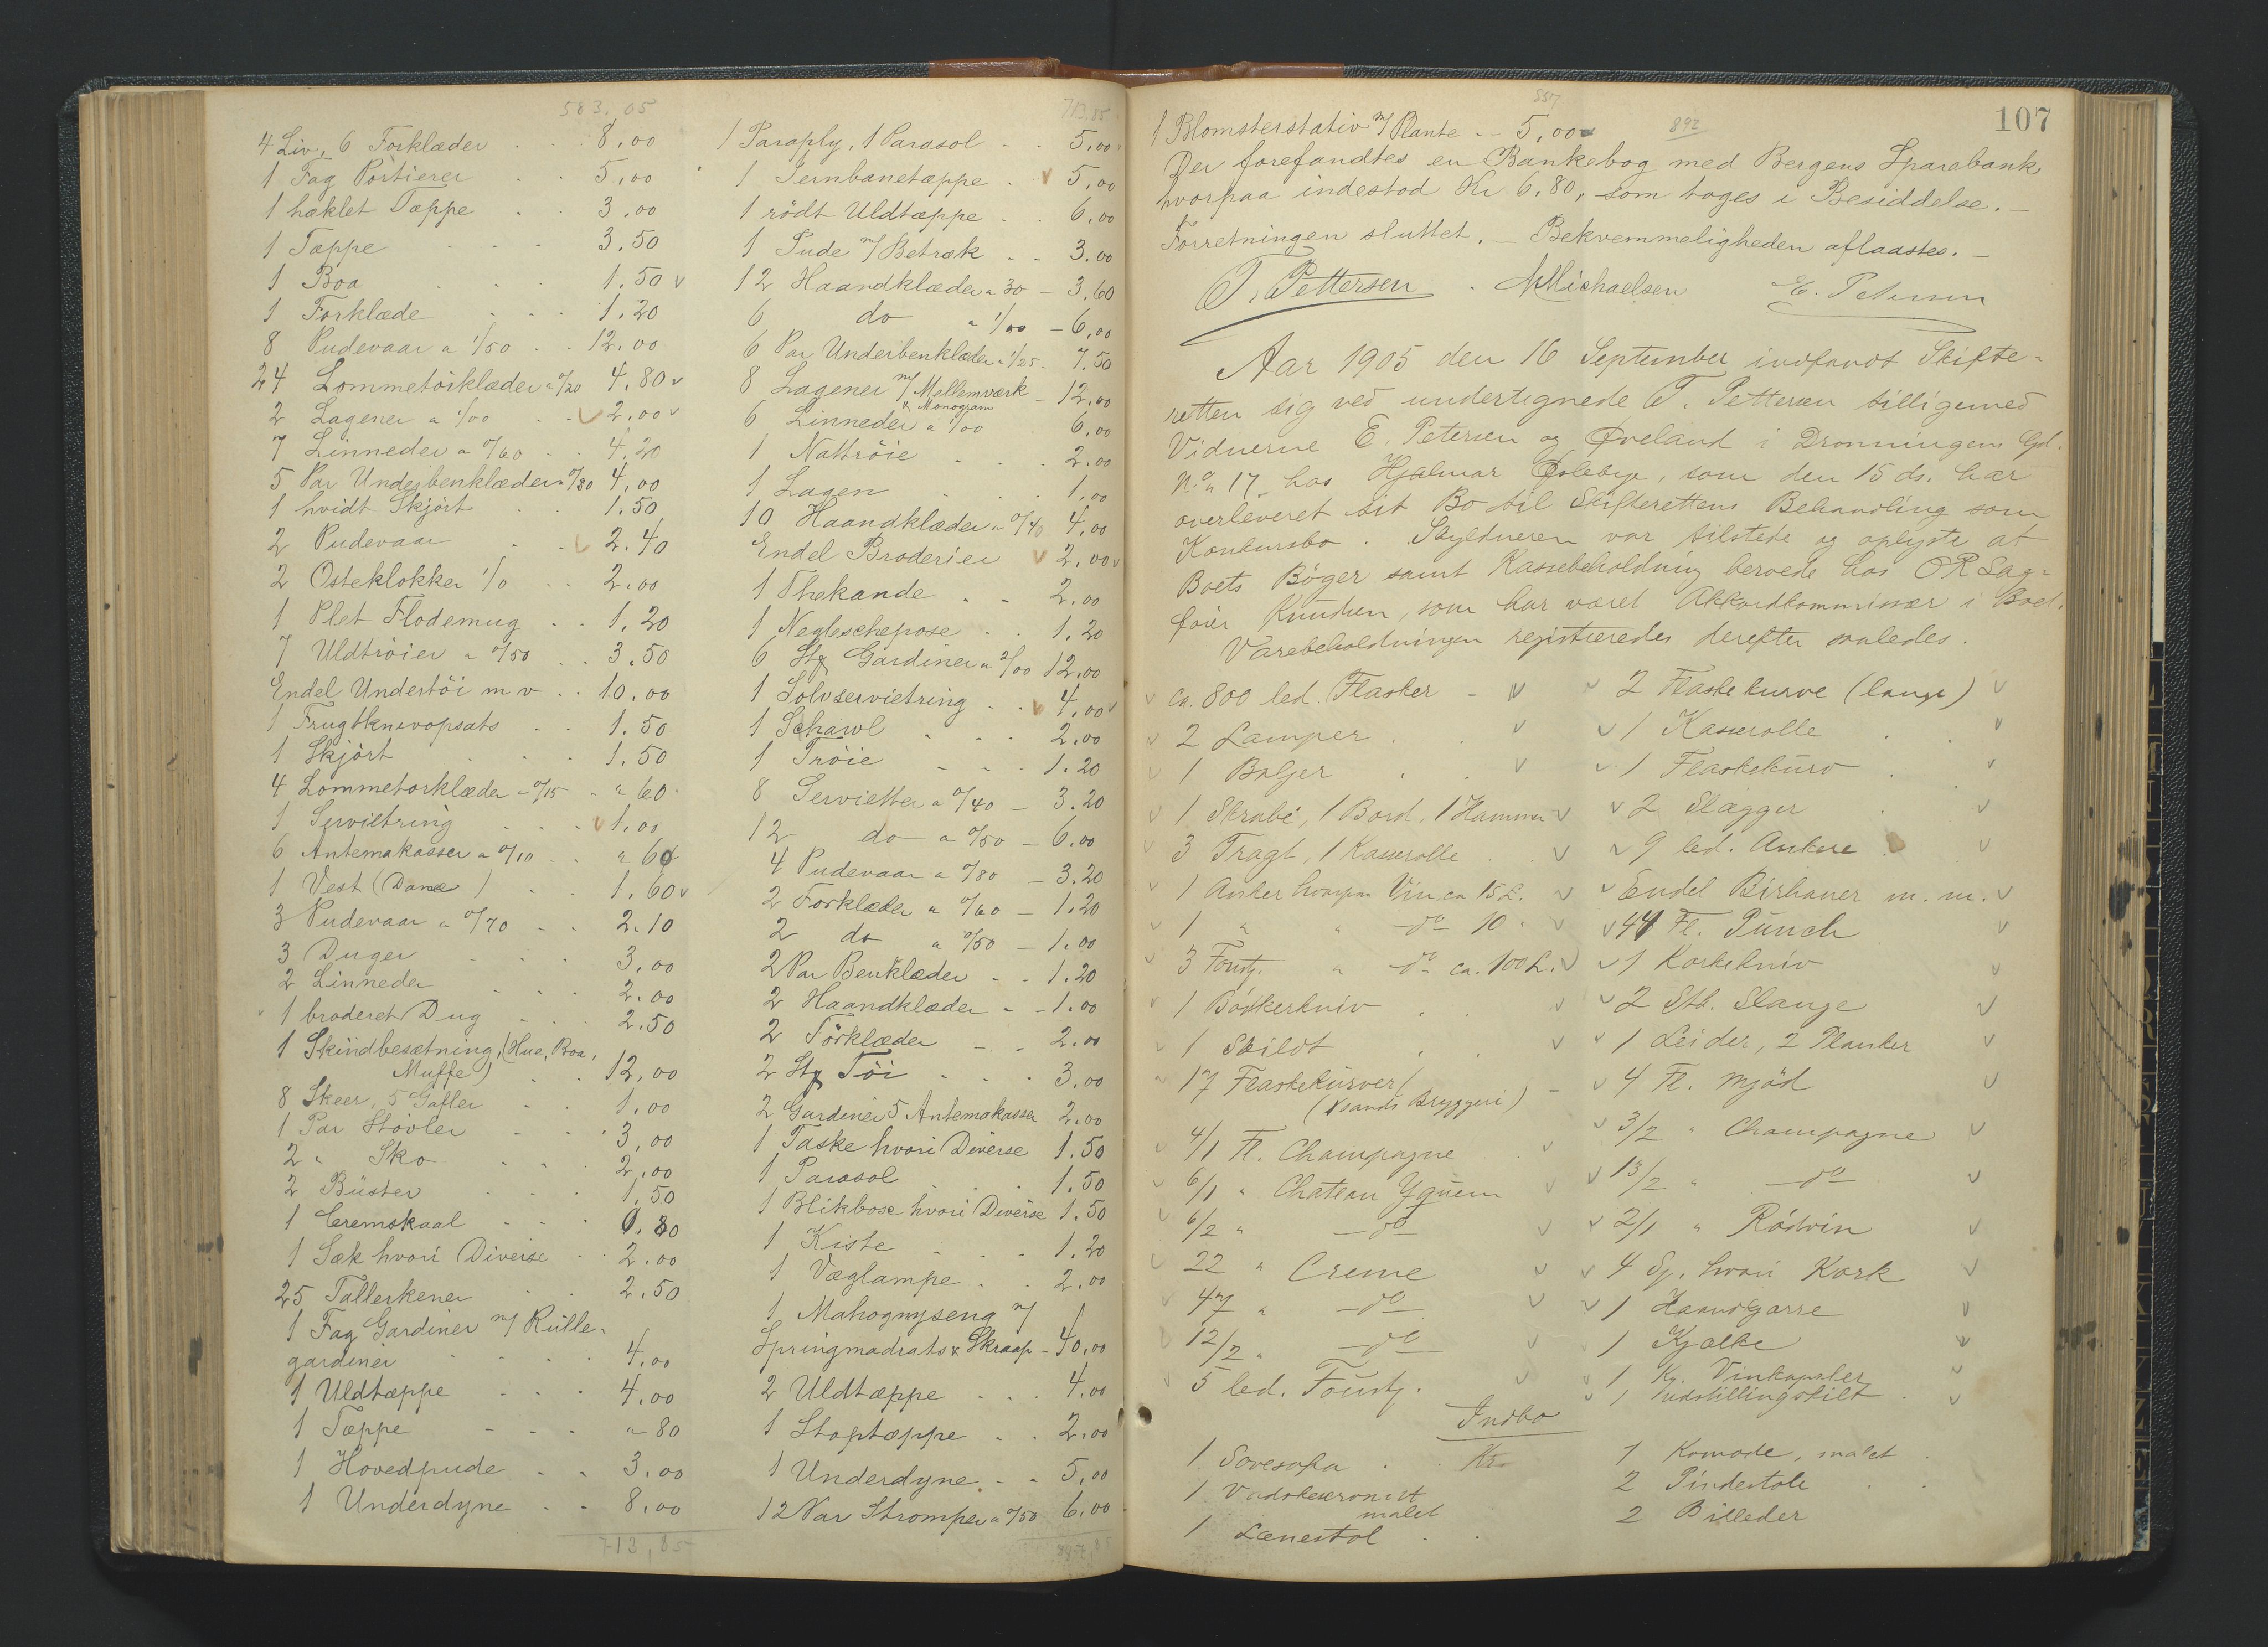 583,05
4 Liv, 6 Forklæder . . . 8,00
1 Fag Portierer . . 5,00
1 hæklet Tæppe . . 3,00
1 Tæppe . . . 3.50
1 Boa . . . 1.50 v
1 Forklæde . . . 1.20
8 Pudevaar a 1/50 . . 12.00
24 Lommetörklæder a 0/20 4.80 v
2 Lagener a 1/00 . . v 2.00 v
7 Linneder a 0/60 . . 4.20
5 Par Underbenklæder a 0/80 4,00
1 hvidt Skjört . . 1.50
2 Pudevaar . . v 2.40
2 Osteklokker 1/0 . . 2.00
1 Plet Flödemug . . 1.20
7 Uldtröier a 0/50 . . 3.50
Endel Undertöi m v . . 10.00
1 Frugtknivopsats . . 1.50
1 Skjört . . . 1.50
4 Lommetørklæder a 0/15 - " 60
1 Serviettring . . . v 1.00
6 Antemakasser a 0/10 . . " 60
1 Vest (Dame) . . 1.60 v
3 Pudevaar a 0/70 . . 2.10
3 Duger . . . 3,00
2 Linneder . . . 2.00
1 broderet Dug . . 2.50
1 Skindbesætning, (Hue, Boa,
Muffe) . . 12,00
8 Skeer, 5 Gafler . . 1.00
1 Par Støvler . . 3,00
2 " Sko . . . 2,00
2 Büster . . . 1,50
1 Cremskaal . . . 0.80
1 Sæk hvori Diverse . . 2.00
25 Tallerkener . . 2.50
1 Fag Gardiner m/ Rülle-
gardiner . . . 4,00
1 Uldtæppe . . . 4,00
1 Tæppe . . . " 80
1 Hovedpude . . 3,00
1 Underdyne . . 8,00
713,85
713,85
1 Paraply, 1 Parasol . . 5,00
1 Jernbanetæppe . v 5,00
1 rödt Uldtæppe . . 6,00
1 Pude m/ Betræk . . 3.00
12 Haandklæder a 30 - 3,60
6 do a 1/00 - 6,00
6 Par Underbenklæder a 1/25 - 7.50
8 Lagener m/ Mellemværk - 12,00
& Monogram
6 Linneder a 1/00 6,00
1 Nattröie . . . 2.00
1 Lagen . . . 1,00
10 Haandklæder a 0/40 4,00
Endel Broderier v 2,00 v
1 Thekande . . 2.00
1 Negleschepose . . 1.20
6 Stk Gardiner a 2/00 12.00
1 Sölvserviettring . . v 4,00 v
1 Schawl . . . 2.00
1 Tröie . . . 1.20
8 Servietter a 0/40 - 3.20
12 do a 0/50 - 6.00
4 Pudevaar a 0/80 - 3.20
2 Forklæder a 0/60 - 1.20
2 do a 0/50 - 1.00
2 Par Benklæder . . 1.20
2 Haandklæder - - 1.00
2 Törklæder - - 2.00
2 Stk Töi . . . 3,00
2 Gardiner 5 Antemakasser 2,00
1 Taske hvori Diverse 1.50
1 Parasol . . . 1.50
1 Blikbøxe hvori Diverse 1.50
1 Kiste . . . 1.20
1 Væglampe . . 2.00
1 Mahognyseng m/
Springmadrats & Skraap - 40,00
2 Uldtæppe . . . 4,00
1 Stoptæppe . . 2,00
1 Underdyne . . 5,00
12 Par Strömper a 0/50 6.00
107
1 Blomsterstativ m/ Plante - - 5,00
892
Der forefandtes en Bankebog med Bergens Sparebank
hvorpaa indestod Kr 6.80, som toges i Besiddelse. -
Forretningen sluttet. - Bekvemmeligheden aflaastes. -
T. Pettersen . Michaelsen E. Petersen
Aar 1905 den 16 September indfandt Skifte-
retten sig ved undertegnede T. Pettersen tilligemed
Vidnerne E. Petersen og Øveland i Dronningens Gd.
No 17 hos Hjalmar , som den 15 ds. har
overleveret sit Bo til Skifterettens Behandling som
Konkursbo. Skyldneren var tilstede og oplyste at
Boets Böger samt Kassebeholdning beroede hos OR Sag-
förer Knudsen, som har været Akkordkommissær i Boet.
Varebeholdningen registreredes derefter saaledes.
v ca. 800 led. Flasker - v
v 2 Lamper . . v
v 1 Baljer . . v
v 1 Skrabe, 1 Bord, 1 Hammer v
v 3 Tragt, 1 Kasserolle . v
v 1 Anker hvorpaa Vin ca 15 L. v
v 1 " " do 10 " v
v 3 Foustg. " do ca. 100 L. v
v 1 Bödkerkniv . . v
v 1 Skildt . . v
17 Flaskekurver
(Xsands Bryggeri)
v 4/1 Fl. Champagne v
v 6/1 " Chateau Yquem v
v 6/2 " do v
v 22 " Creme v
v 47 " do v
12/2 " do v
5 led. Foustg. v
v 2 Flaskekurve (lange) v
v 1 Kasserolle . . v
v 1 Flaskekurv . v
v 2 Slægger v
v 9 led. Ankere v
v Endel Birhaner m. m. v
v 44 Fl. Punch v
v 1 Korkekniv v
v 2 Stk. Slange v
v 1 Leider, 2 Planker v
v 4 Fl. Mjöd v
v 3/2 " Champagne v
v 13/2 " do v
v 2/1 " Rödvin v
v 4 Sp. hvori Kork v
v 1 v
1 Kjælke v
1 Kg. Vinkapsler v
v 1 udstillingskilt . v
Indbo
1 Sovesofa . Kr.
1
malet
1 Lænestol . .
1 Komode, malet .
2 Pindestole . .
2 Billeder